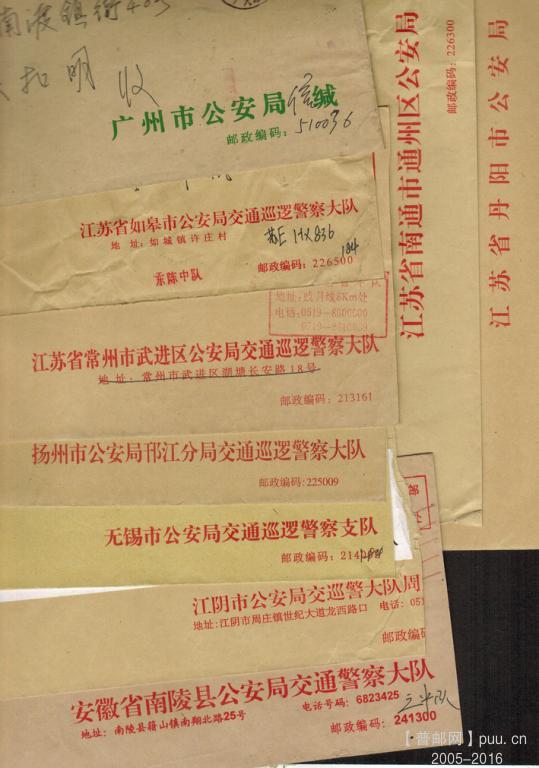 南渡镇街403
扣明 收
广州市公安局信缄
邮政编码：510036
江苏省如皋市公安局交通巡逻警察大队
地 址：如城镇许庄村
苏E HX836
184
东陈中队
邮政编码：226500
地址：戗月线8Km处
电话：0519-8800000
江苏省常州市武进区公安局交通巡逻警察大队
地 址：常州市武进区湖塘长安路18号
邮政编码：213161
扬州市公安局邗江分局交通巡逻警察大队
邮政编码:225009
无锡市公安局交通巡逻警察支队
邮政编码：214
江阴市公安局交巡警大队周
地址:江阴市周庄镇世纪大道龙西路口 电话：051
邮政编
安徽省南陵县公安局交通警察大队
电话号码：6823425
地址：南陵县籍山镇南翔北路25号
邮政编码：241300
三中队
江苏省南通市通州区公安局
邮政编码：226300
江苏省丹阳市公安局
【普邮网】puu.cn
2005-2016